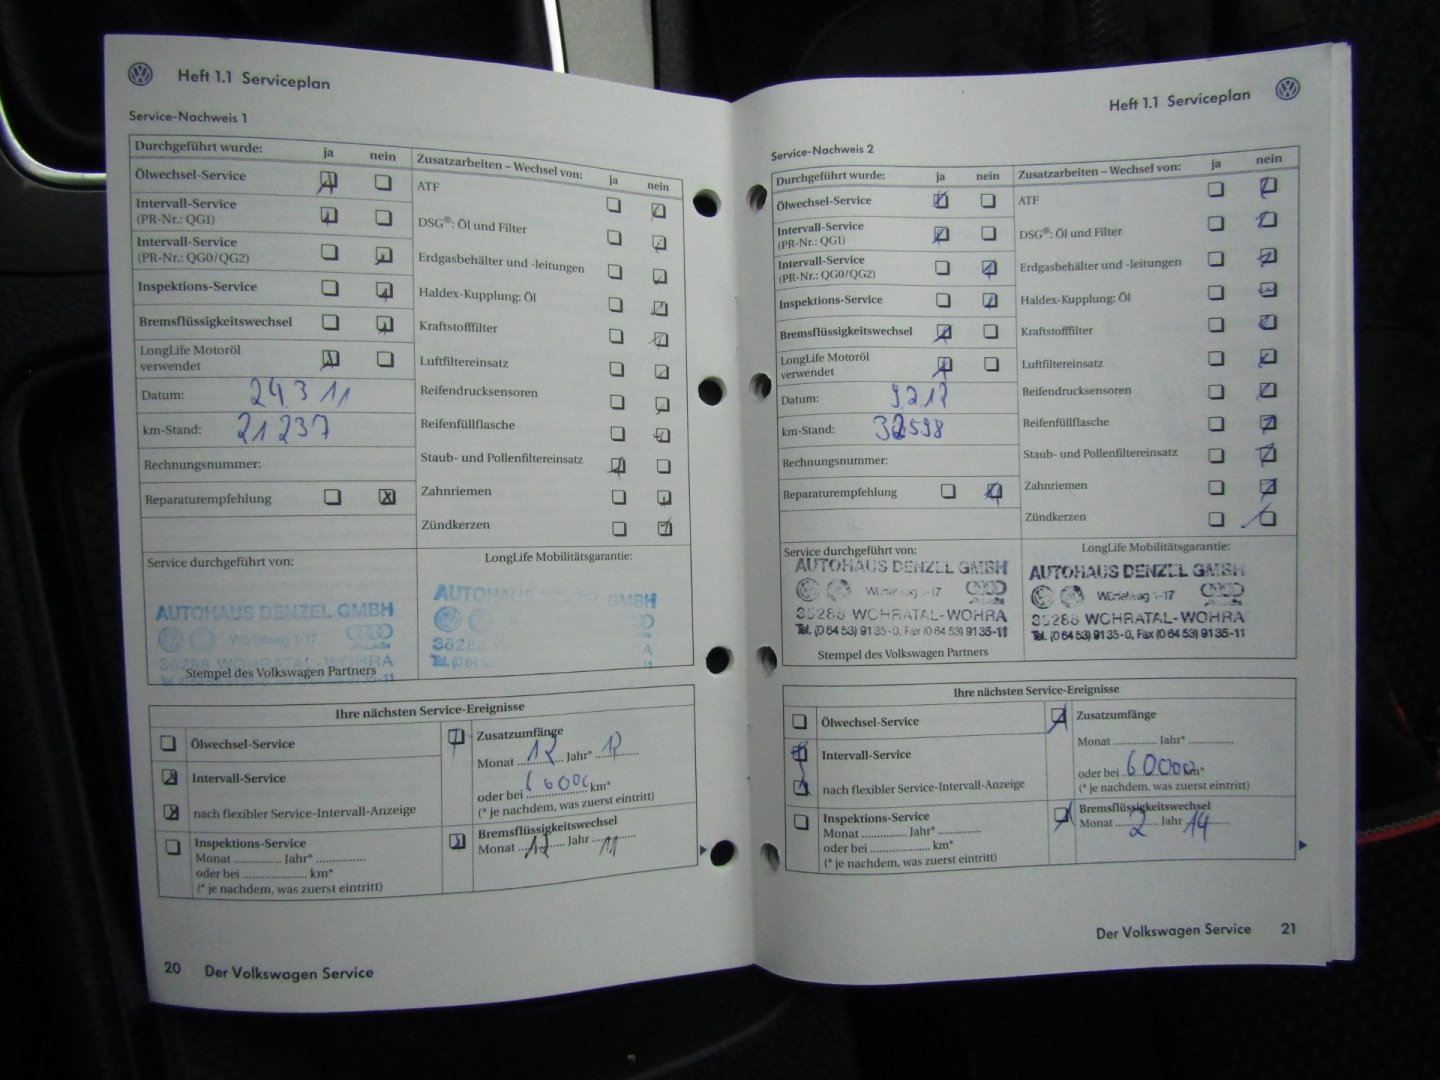 Heft 1.1 Serviceplan
Service-Nachweis 1
Durchgeführt wurde: ja nein
Ölwechsel-Service
Intervall-Service
(PR-Nr.: QG1)
Intervall-Service
(PR-Nr.: QG0/QG2)
Inspektions-Service
Bremsflüssigkeitswechsel
LongLife Motoröl
verwendet
Datum: 24 3 11
km-Stand: 21 237
Rechnungsnummer:
Reparaturempfehlung
Zusatzarbeiten – Wechsel von: ja nein
ATF
DSG®: Öl und Filter
Erdgasbehälter und -leitungen
Haldex-Kupplung: Öl
Kraftstofffilter
Luftfiltereinsatz
Reifendrucksensoren
Reifenfüllflasche
Staub- und Pollenfiltereinsatz
Zahnriemen
Zündkerzen
Service durchgeführt von:
AUTOHAUS DENZEL GMBH
Würfelweg 1-17
35288 WOHRATAL-WOHRA
Stempel des Volkswagen Partners
LongLife Mobilitätsgarantie:
AUTOHAUS DENZEL GMBH
Ihre nächsten Service-Ereignisse
Ölwechsel-Service
Intervall-Service
nach flexibler Service-Intervall-Anzeige
Inspektions-Service
Monat ............. Jahr* .............
oder bei .................. km*
(* je nachdem, was zuerst eintritt)
Zusatzumfänge
Monat 12 Jahr* 12
oder bei 60000 km*
(* je nachdem, was zuerst eintritt)
Bremsflüssigkeitswechsel
Monat 12 Jahr 11
20 Der Volkswagen Service
Heft 1.1 Serviceplan
Service-Nachweis 2
Durchgeführt wurde: ja nein
Ölwechsel-Service
Intervall-Service
(PR-Nr.: QG1)
Intervall-Service
(PR-Nr.: QG0/QG2)
Inspektions-Service
Bremsflüssigkeitswechsel
LongLife Motoröl
verwendet
Datum: 9 2 12
km-Stand: 32598
Rechnungsnummer:
Reparaturempfehlung
Zusatzarbeiten – Wechsel von: ja nein
ATF
DSG®: Öl und Filter
Erdgasbehälter und -leitungen
Haldex-Kupplung: Öl
Kraftstofffilter
Luftfiltereinsatz
Reifendrucksensoren
Reifenfüllflasche
Staub- und Pollenfiltereinsatz
Zahnriemen
Zündkerzen
Service durchgeführt von:
AUTOHAUS DENZEL GMBH
Würfelweg 1-17
35288 WOHRATAL-WOHRA
Tel. (0 64 53) 91 35-0, Fax (0 64 53) 91 35-11
Stempel des Volkswagen Partners
LongLife Mobilitätsgarantie:
AUTOHAUS DENZEL GMBH
Würfelweg 1-17
35288 WOHRATAL-WOHRA
Tel. (0 64 53) 91 35-0, Fax (0 64 53) 91 35-11
Ihre nächsten Service-Ereignisse
Ölwechsel-Service
Intervall-Service
nach flexibler Service-Intervall-Anzeige
Inspektions-Service
Monat ............. Jahr* .............
oder bei .................. km*
(* je nachdem, was zuerst eintritt)
Zusatzumfänge
Monat ............. Jahr* .............
oder bei 60000 km*
(* je nachdem, was zuerst eintritt)
Bremsflüssigkeitswechsel
Monat 2 Jahr 14
Der Volkswagen Service 21